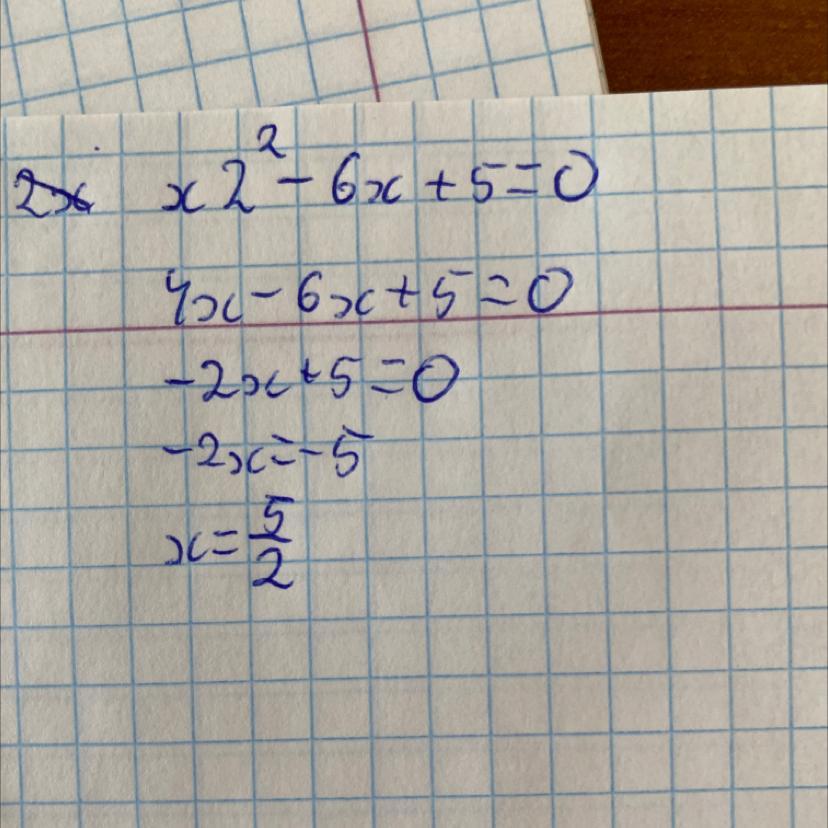 x2² - 6x + 5 = 0
4x - 6x + 5 = 0
-2x + 5 = 0
-2x = -5
x = 5/2